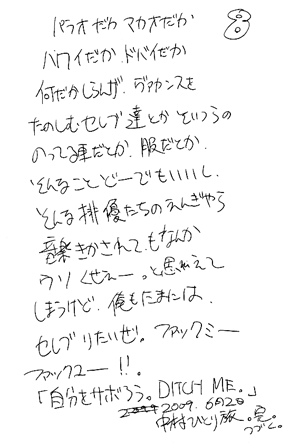 ⑧
パラオだか マカオだか
ハワイだか、ドバイだか
何だかしらんが、ヴァカンスを
たのしむセレブ達とか そいつらの
のってる車だとか、服だとか、
そんなこと どーでもいいし、
そんな俳優たちのえんぎやら
音楽きかされてもなんか
ウソくせぇー。と思えて
しまうけど、俺もたまには、
セレブりたいぜ。ファックミー
ファックユー!!。
「自分をサボろう。DITCH ME。」
2009. 6月20
中村ひとり旅。完。
つづく。